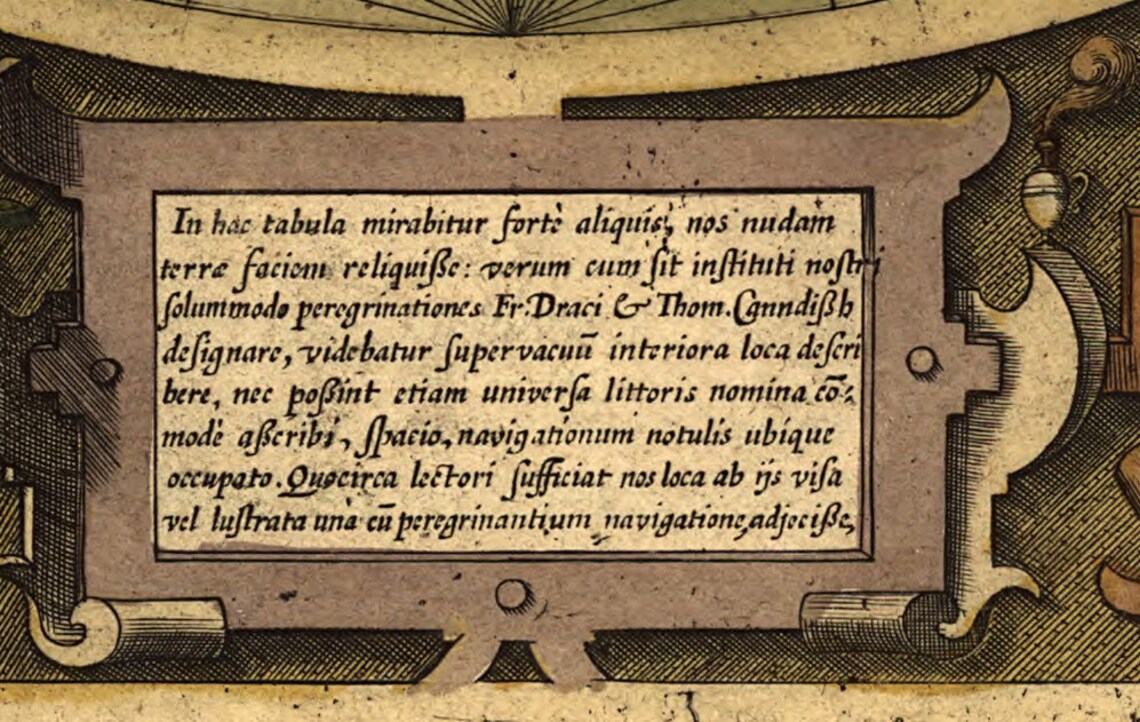 In hac tabula mirabitur fortè aliquis, nos nudam
terræ faciem reliquiße: verum cum ſit inſtituti noſtri
ſolummodo peregrinationes Fr. Draci & Thom. Canndißh
deſignare, videbatur ſupervacuū interiora loca deſcri
bere, nec poßint etiam univerſa littoris nomina cō:
modè aßcribi, ſpacio, navigationum notulis ubique
occupato. Quocirca lectori ſufficiat nos loca ab ijs viſa
vel luſtrata unà cū peregrinantium navigatione, adjeciße,